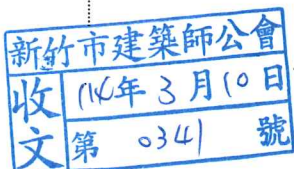 新竹市建築師公會
收文
114年3月10日
第 0341 號